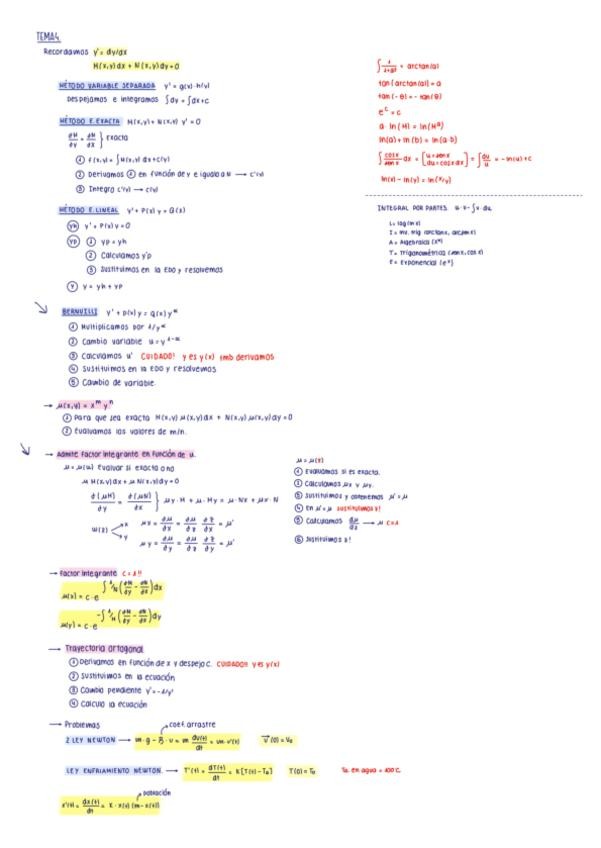 TEMA4
Recordamos y' = dy/dx
M(x,y)dx + N(x,y)dy=0
MÉTODO VARIABLE SEPARADA y' = g(x)·h(y)
Despejamos e integramos ∫dy = ∫dx+c
MÉTODO E.EXACTA M(x,y)+ N(x,y) y' = 0
∂M/∂y = ∂N/∂x } exacta
① f(x,y) = ∫M(x,y) dx+c(y)
② Derivamos ① en función de y e igualo a N → c'(y)
③ Integro c'(y) → c(y)
MÉTODO E.LINEAL y'+ P(x) y = Q(x)
yh y'+ P(x)y=0
yp ① yp = yh
② Calculamos y'p
③ Sustituimos en la EDO y resolvemos
y y = yh + yp
BERNUILLI y' + p(x) y = Q(x) y^α
① Multiplicamos por 1/y^α
② Cambio variable u = y^1-α
③ Calculamos u' CUIDADO! y es y(x) tmb derivamos
④ Sustituimos en la EDO y resolvemos
⑤ Cambio de variable.
→ μ(x,y) = x^m y^n
① Para que sea exacta M(x,y) μ(x,y)dx + N(x,y)μ(x,y)dy=0
② Evaluamos los valores de m/n.
→ Admite factor integrante en función de u.
μ = μ(u) Evaluar si exacta o no
μ M(x,y)dx + μ N(x,y)dy=0
∂(μM)/∂y = ∂(μN)/∂x } μy·M + μ·My = μ·Nx + μx·N
μx = ∂μ/∂x = ∂μ/∂z ∂z/∂x = μ'
μy = ∂μ/∂y = ∂μ/∂z ∂z/∂y = μ'
→ Factor integrante C=1!!
μ(x) = c·e^∫1/N(∂M/∂y - ∂N/∂x)dx
μ(y) = c·e^-∫1/M(∂M/∂y - ∂N/∂x)dy
→ Trayectoria ortogonal
① Derivamos en función de x y despejo c. CUIDADO!! y es y(x)
② Sustituimos en la ecuación
③ Cambio pendiente y'=-1/y'
④ Calculo la ecuación
→ Problemas
coef. arrastre
2 LEY NEWTON → m·g - B·v = m dv(t)/dt = m·v'(t) v(0) = V₀
LEY ENFRIAMIENTO NEWTON. → T'(t) = dT(t)/dt = K[T(t)-Ta] T(0)=T₀ Ta en agua = 100C
población
x'(t) = dx(t)/dt = K·x(t)(m-x(t))
∫1/(1+a²) = arctan(a)
tan(arctan(a)) = a
tan(-θ) = -tan(θ)
e^c = c
a·ln(M) = ln(M^a)
ln(a) + ln(b) = ln(a·b)
∫cosx/senx dx = [u=senx du=cosx dx] = ∫du/u = -ln(u)+c
ln(x) - ln(y) = ln(x/y)
INTEGRAL POR PARTES. u·v-∫v·du
L= log(ln x)
I = inv. trig (arctanx, arcsenx)
A = Algebraica (x^a)
T = Trigonométrica (senx, cosx)
E = Exponencial (e^x)
① Evaluamos si es exacta.
② Calculamos μx y μy.
③ Sustituimos y obtenemos μ' = μ
④ En μ' = μ sustituimos z!
⑥ Sustituimos z!